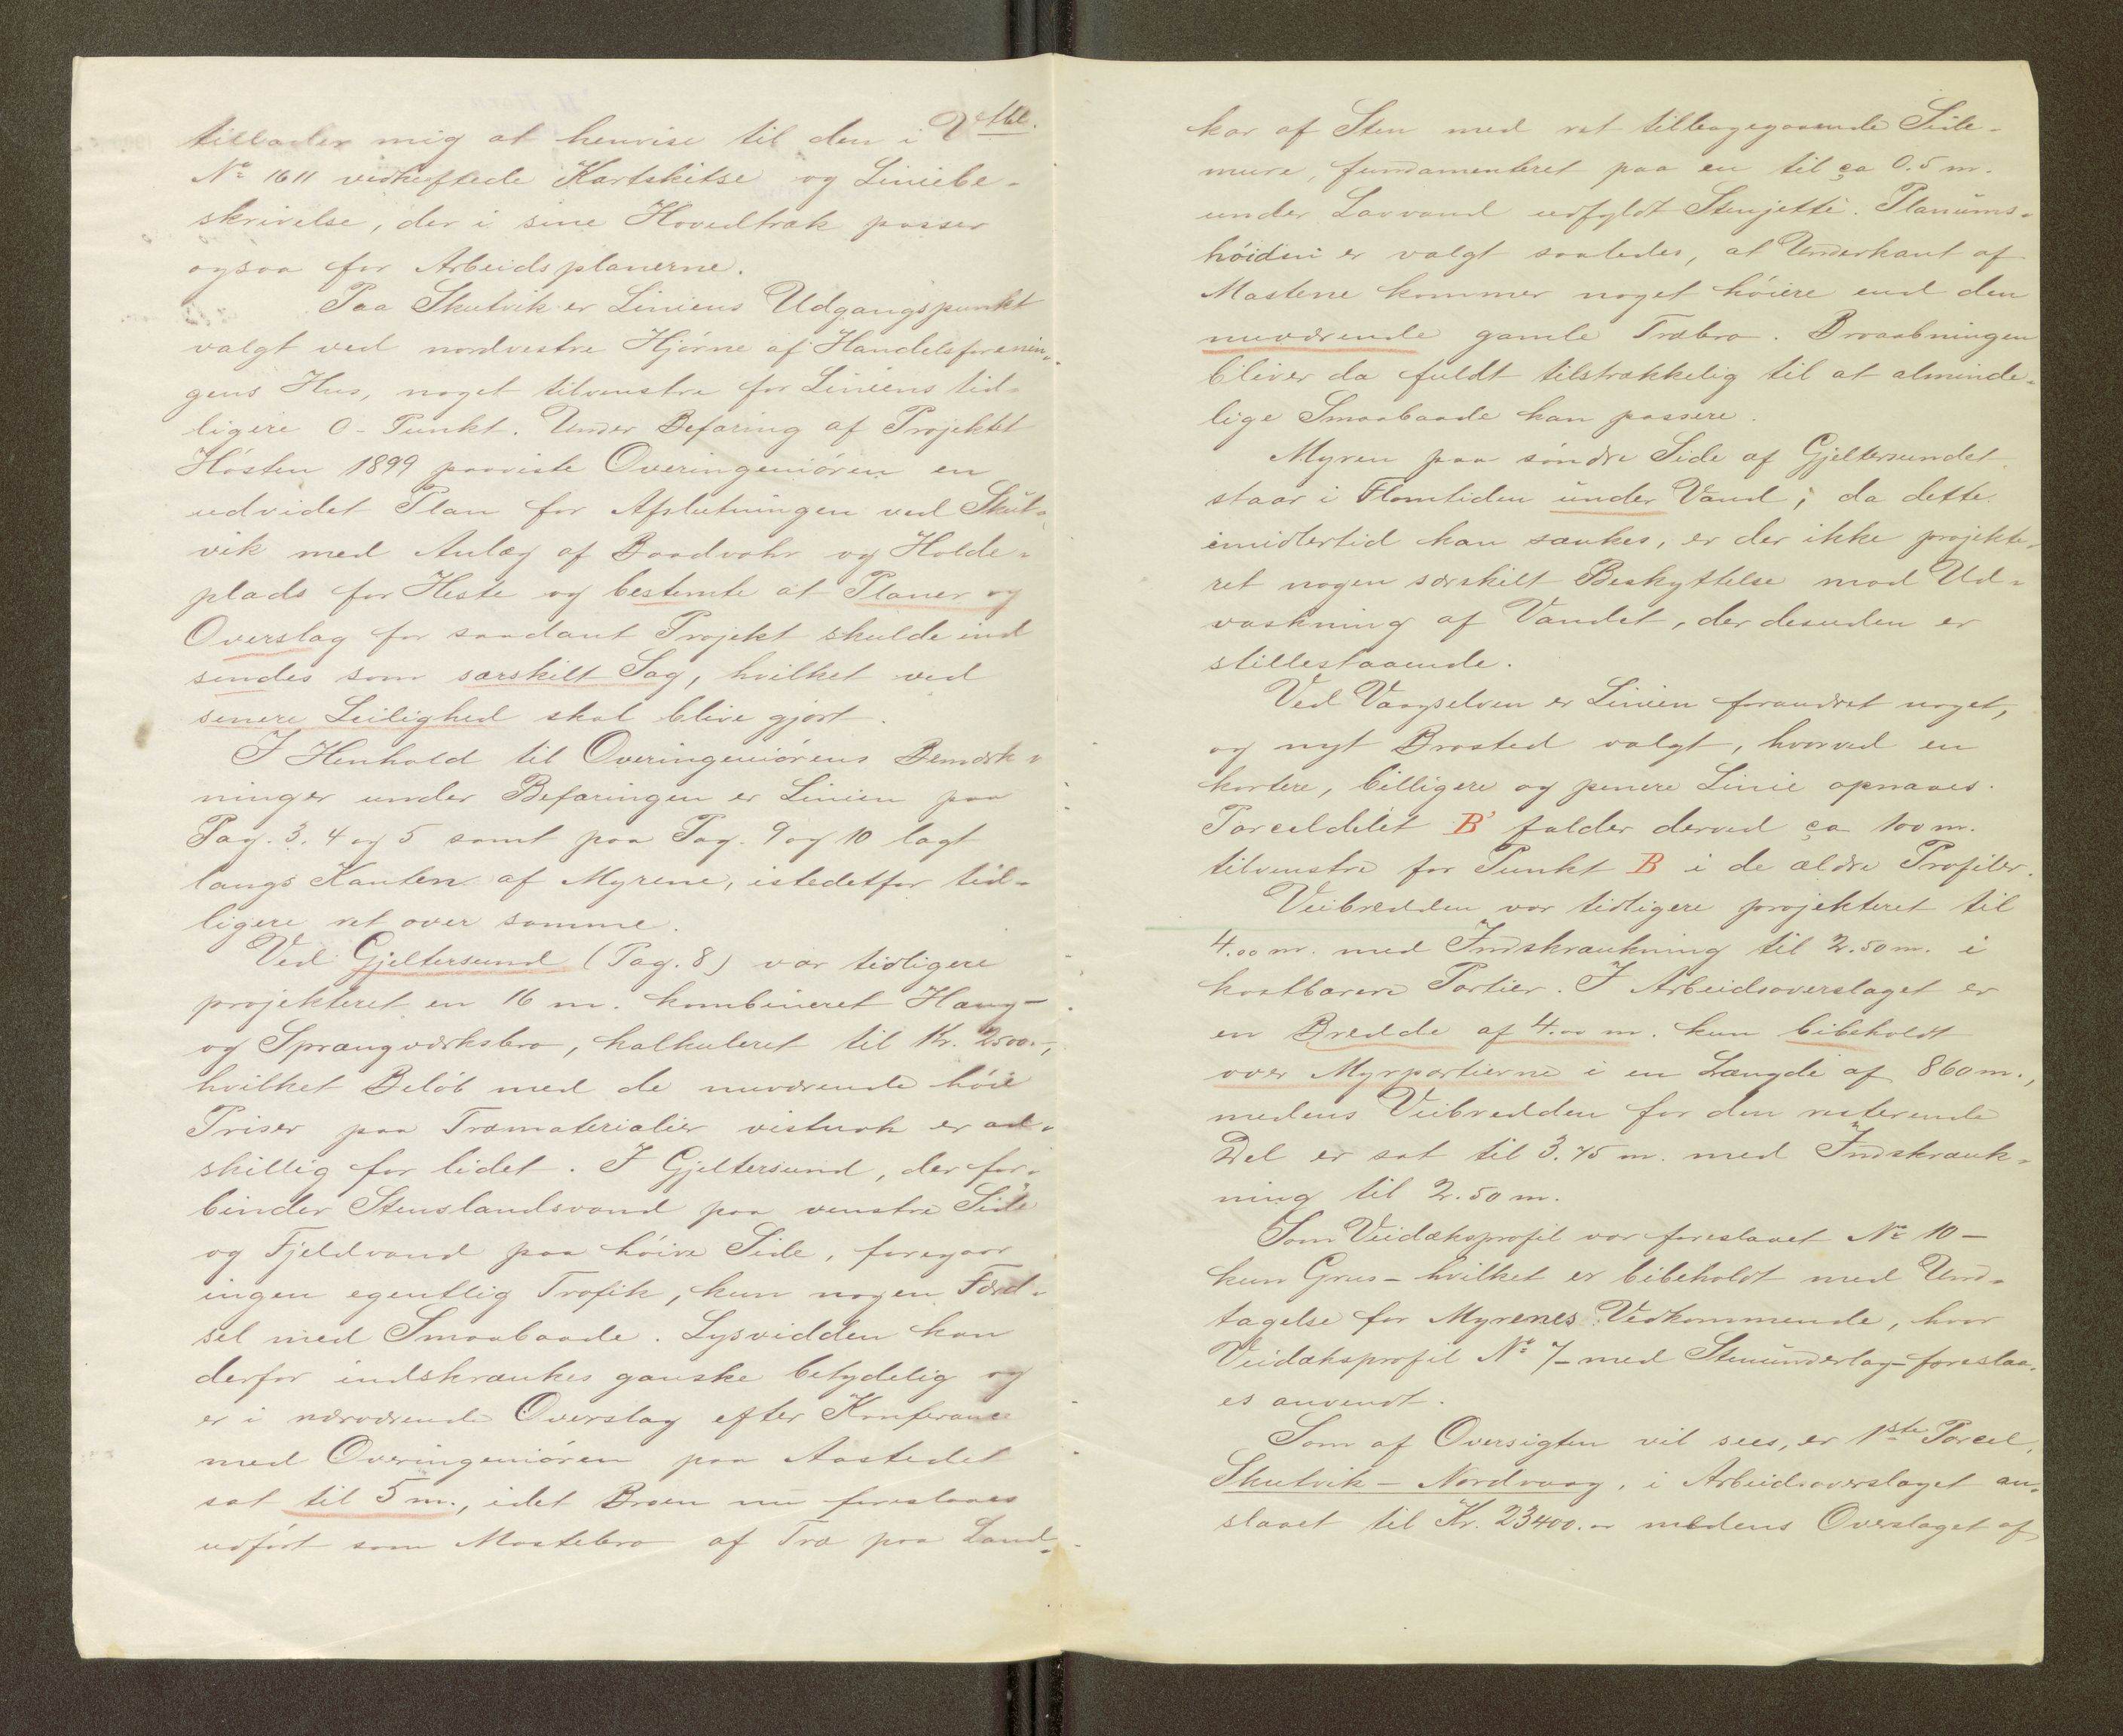 tillader mig at henvise til den i Vtbl.
No 1611 vedheftede Kartskitse og Liniebe-
skrivelse, der i sine Hovedtræk passer
ogsaa for Arbeidsplanerne.
Paa Skutvik er Liniens Udgangspunkt
valgt ved nordvestre Hjörne af Handelsforenin-
gens Hus, noget tilvenstre for Liniens tid-
ligere 0-Punkt. Under Befaring af Projektet
Hösten 1899 paaviste Overingeniören en
udvidet Plan for Afslutningen ved Skut-
vik med Anlæg af Baadvohr og Holde-
plads for Heste og bestemte at Planer og
Overslag for saadant Projekt skulde ind
sendes som særskilt Sag, hvilket ved
senere Leilighed skal blive gjort.
I Henhold til Overingeniörens Bemærk-
ninger under Befaringen er Linien paa
Pag. 3. 4 og 5 samt paa Pag. 9 og 10 lagt
langs Kanten af Myrene, istedetfor tid-
ligere ret over samme.
Ved Gjeltersund (Pag. 8) var tidligere
projekteret en 16 m. kombineret Hæng-
og Sprængværksbro, kalkuleret til Kr. 2500.-,
hvilket Belöb med de nuværende höie
Priser paa Træmaterialier vistnok er ad-
skillig for lidet. I Gjeltersund, der for-
binder Stenslandsvand paa venstre Side
og Fjeldvand paa höire Side, foregaar
ingen egentlig Trafik, kun nogen Færd-
sel med Smaabaade. Lysvidden kan
derfor indskrænkes ganske betydelig og
er i nærværende Overslag efter Konferance
med Overingeniören paa Aastedet
sat til 5 m., idet Broen nu foreslaaes
udfört som Mastebro af Træ paa Land-
kar af Sten med ret tilbagegaaende Side-
mure, fundamenteret paa en til ca 0.5 m.
under Lavvand udfyldt Stenjetté. Planums-
höiden er valgt saaledes, at Underkant af
Mastene kommer noget höiere end den
nuværende gamle Træbro. Broaabningen
bliver da fuldt tilstrækkelig til at alminde-
lige Smaabaade kan passere.
Myren paa söndre Side af Gjeltersundet
staar i Flomtiden under Vand; da dette
imidlertid kan sænkes, er der ikke projekte-
ret nogen særskilt Beskyttelse mod Ud-
vaskning af Vandet, der desuden er
stillestaaende.
Ved Vaagselven er Linien forandret noget,
og nyt Brosted valgt, hvorved en
kortere, billigere og penere Linie opnaaes.
Parceldelet B' falder derved ca 100 m.
tilvenstre for Punkt B i de ældre Profiler.
Veibredden var tidligere projekteret til
4.00 m. med Indskrænkning til 2.50 m. i
kostbarere Partier. I Arbeidsoverslaget er
en Bredde af 4.00 m. kun bibeholdt
over Myrpartierne i en Længde af 860 m.,
medens Veibredden for den resterende
Del er sat til 3.75 m. med Indskrænk-
ning til 2.50 m.
Som Veidæksprofil var foreslaaet No 10 -
kun Grus - hvilket er bibeholdt med Und-
tagelse for Myrenes Vedkommende, hvor
Veidæksprofil No 7 - med Stenunderlag - foreslaa-
es anvendt.
Som af Oversigten vil sees, er 1ste Parcel,
Skutvik - Nordvaag, i Arbeidsoverslaget an-
slaaet til Kr. 23400.- medens Overslaget af